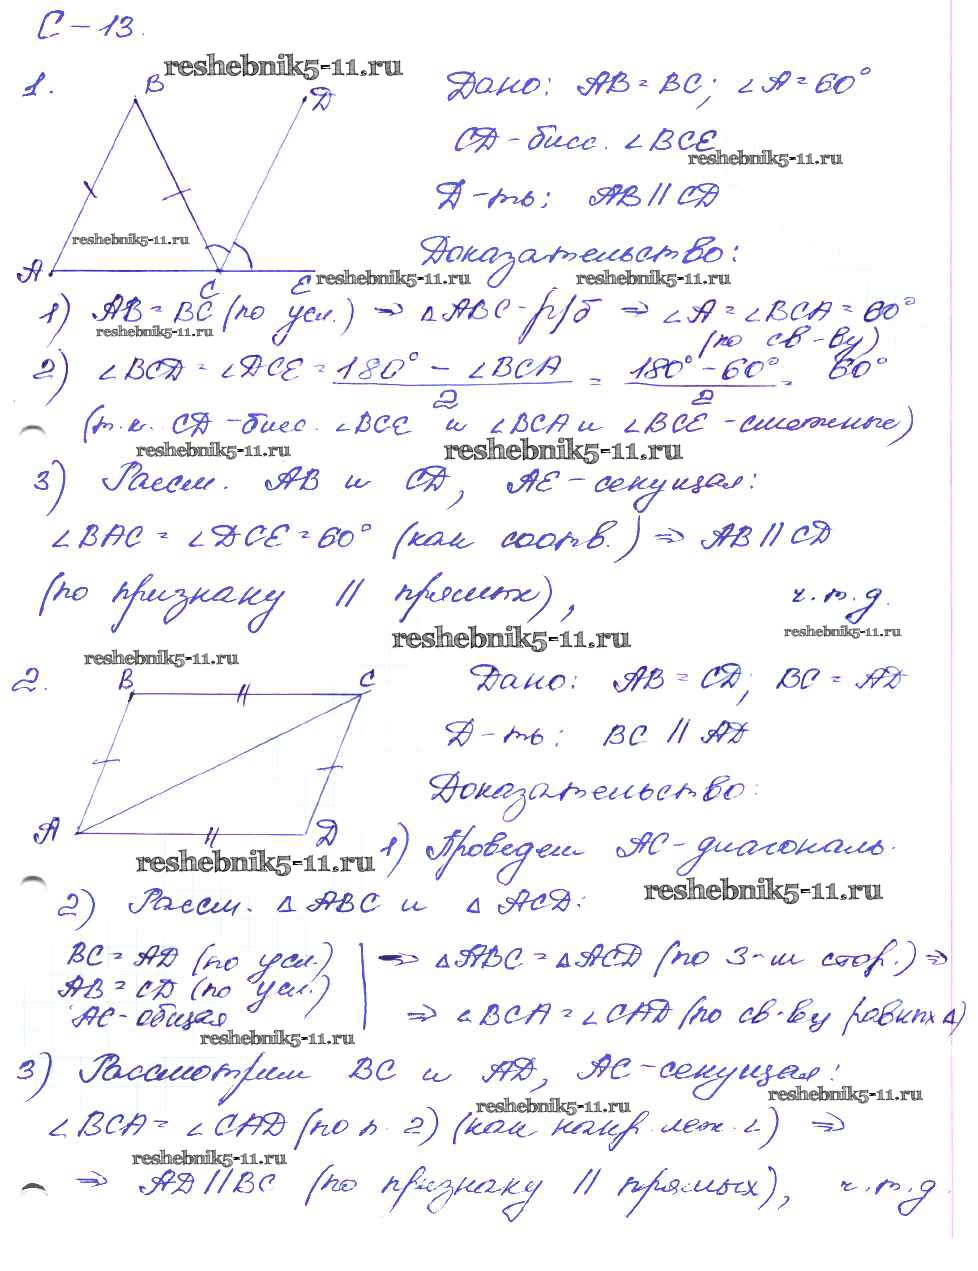 С-13.
reshebnik5-11.ru
1.
B
D
Дано: AB = BC; ∠A = 60°
CD - бисс. ∠BCE
reshebnik5-11.ru
Д-ть: AB || CD
reshebnik5-11.ru
Доказательство:
A
C
E
reshebnik5-11.ru
reshebnik5-11.ru
1) AB = BC (по усл.) => △ABC - р/б => ∠A = ∠BCA = 60°
reshebnik5-11.ru
(по св-ву)
2) ∠BCD = ∠DCE = (180° - ∠BCA)/2 = (180° - 60°)/2 = 60°
(т.к. CD - бисс. ∠BCE и ∠BCA и ∠BCE - смежные)
reshebnik5-11.ru
reshebnik5-11.ru
3) Рассм. AB и CD, AE - секущая:
∠BAC = ∠DCE = 60° (как соотв.) => AB || CD
(по признаку || прямых), ч.т.д.
reshebnik5-11.ru
reshebnik5-11.ru
reshebnik5-11.ru
2.
B
C
Дано: AB = CD; BC = AD
Д-ть: BC || AD
Доказательство:
A
D
1) Проведем AC - диагональ.
reshebnik5-11.ru
reshebnik5-11.ru
2) Рассм. △ABC и △ACD:
BC = AD (по усл.)
AB = CD (по усл.)
AC - общая
=> △ABC = △ACD (по 3-м стор.) =>
=> ∠BCA = ∠CAD (по св-ву равных △)
reshebnik5-11.ru
3) Рассмотрим BC и AD, AC - секущая:
reshebnik5-11.ru
reshebnik5-11.ru
∠BCA = ∠CAD (по п. 2) (как накр. леж. ∠) =>
reshebnik5-11.ru
=> AD || BC (по признаку || прямых), ч.т.д.